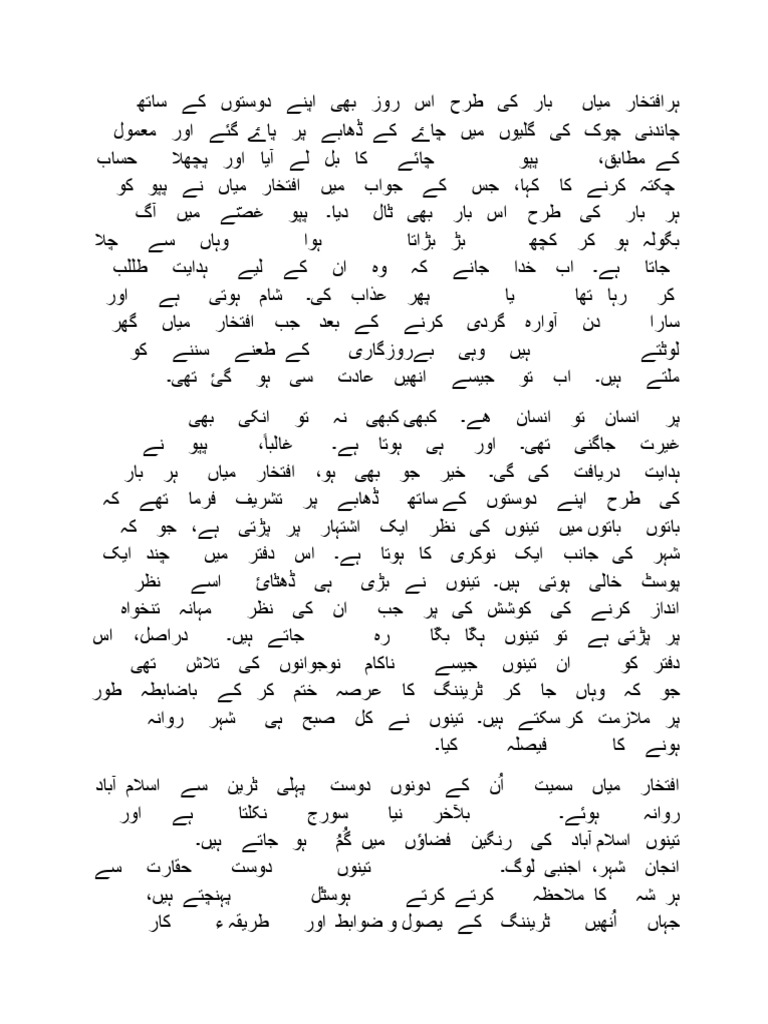 ہرافتخار میاں بار کی طرح اس روز بھی اپنے دوستوں کے ساتھ
چاندنی چوک کی گلیوں میں چاۓ کے ڈھابے پر پاۓ گئے اور معمول
کے مطابق، پپو چائے کا بل لے آیا اور پچھلا حساب
چکتہ کرنے کا کہا، جس کے جواب میں افتخار میاں نے پپو کو
ہر بار کی طرح اس بار بھی ٹال دیا۔ پپو غصّے میں آگ
بگولہ ہو کر کچھ بڑ بڑاتا ہوا وہاں سے چلا
جاتا ہے۔ اب خدا جانے کہ وہ ان کے لیے ہدایت طللب
کر رہا تھا یا پھر عذاب کی۔ شام ہوتی ہے اور
سارا دن آوارہ گردی کرنے کے بعد جب افتخار میاں گھر
لوٹتے ہیں وہی بےروزگاری کے طعنے سننے کو
ملتے ہیں۔ اب تو جیسے انھیں عادت سی ہو گئ تھی۔
پر انسان تو انسان ھے۔ کبھی کبھی نہ تو انکی بھی
غیرت جاگنی تھی۔ اور ہی ہوتا ہے۔ غالباً، پپو نے
ہدایت دریافت کی گی۔ خیر جو بھی ہو، افتخار میاں ہر بار
کی طرح اپنے دوستوں کے ساتھ ڈھابے پر تشریف فرما تھے کہ
باتوں باتوں میں تینوں کی نظر ایک اشتہار پر پڑتی ہے، جو کہ
شہر کی جانب ایک نوکری کا ہوتا ہے۔ اس دفتر میں چند ایک
پوسٹ خالی ہوتی ہیں۔ تینوں نے بڑی ہی ڈھٹائ اسے نظر
انداز کرنے کی کوشش کی پر جب ان کی نظر مہانہ تنخواہ
پر پڑتی ہے تو تینوں ہکّا بکّا رہ جاتے ہیں۔ دراصل، اس
دفتر کو ان تینوں جیسے ناکام نوجوانوں کی تلاش تھی
جو کہ وہاں جا کر ٹریننگ کا عرصہ ختم کر کے باضابطہ طور
پر ملازمت کر سکتے ہیں۔ تینوں نے کل صبح ہی شہر روانہ
ہونے کا فیصلہ کیا۔
افتخار میاں سمیت اُن کے دونوں دوست پہلی ٹرین سے اسلام آباد
روانہ ہوئے۔ بلآخر نیا سورج نکلتا ہے اور
تینوں اسلام آباد کی رنگین فضاؤں میں گُمُ ہو جاتے ہیں۔
انجان شہر، اجنبی لوگ۔ تینوں دوست حقارت سے
ہر شہ کا ملاحظہ کرتے کرتے ہوسٹل پہنچتے ہیں،
جہاں اُنھیں ٹریننگ کے یصول و ضوابط اور طریقہ ء کار